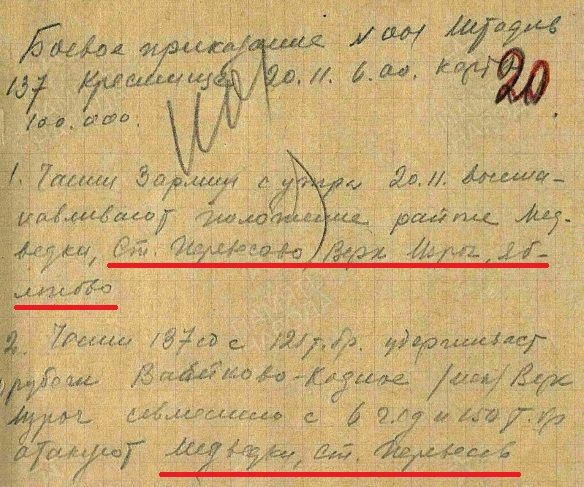 Боевое приказание №001 Штадив
137 Кресницево 20.11. 6.00. карта
100.000.
20
1. Части 3 армии с утра 20.11. восста-
навливают положение районе Мед-
ведки, Ст. Перевесово, Верх Изрог, Яб-
локово
2. Части 137 сд с 121 т.бр. удерживает
рубеж -Кодное (иск) Верх
Изрог совместно с 6 гсд и 150 т.бр
атакуют Медведки, Ст. Перевесов